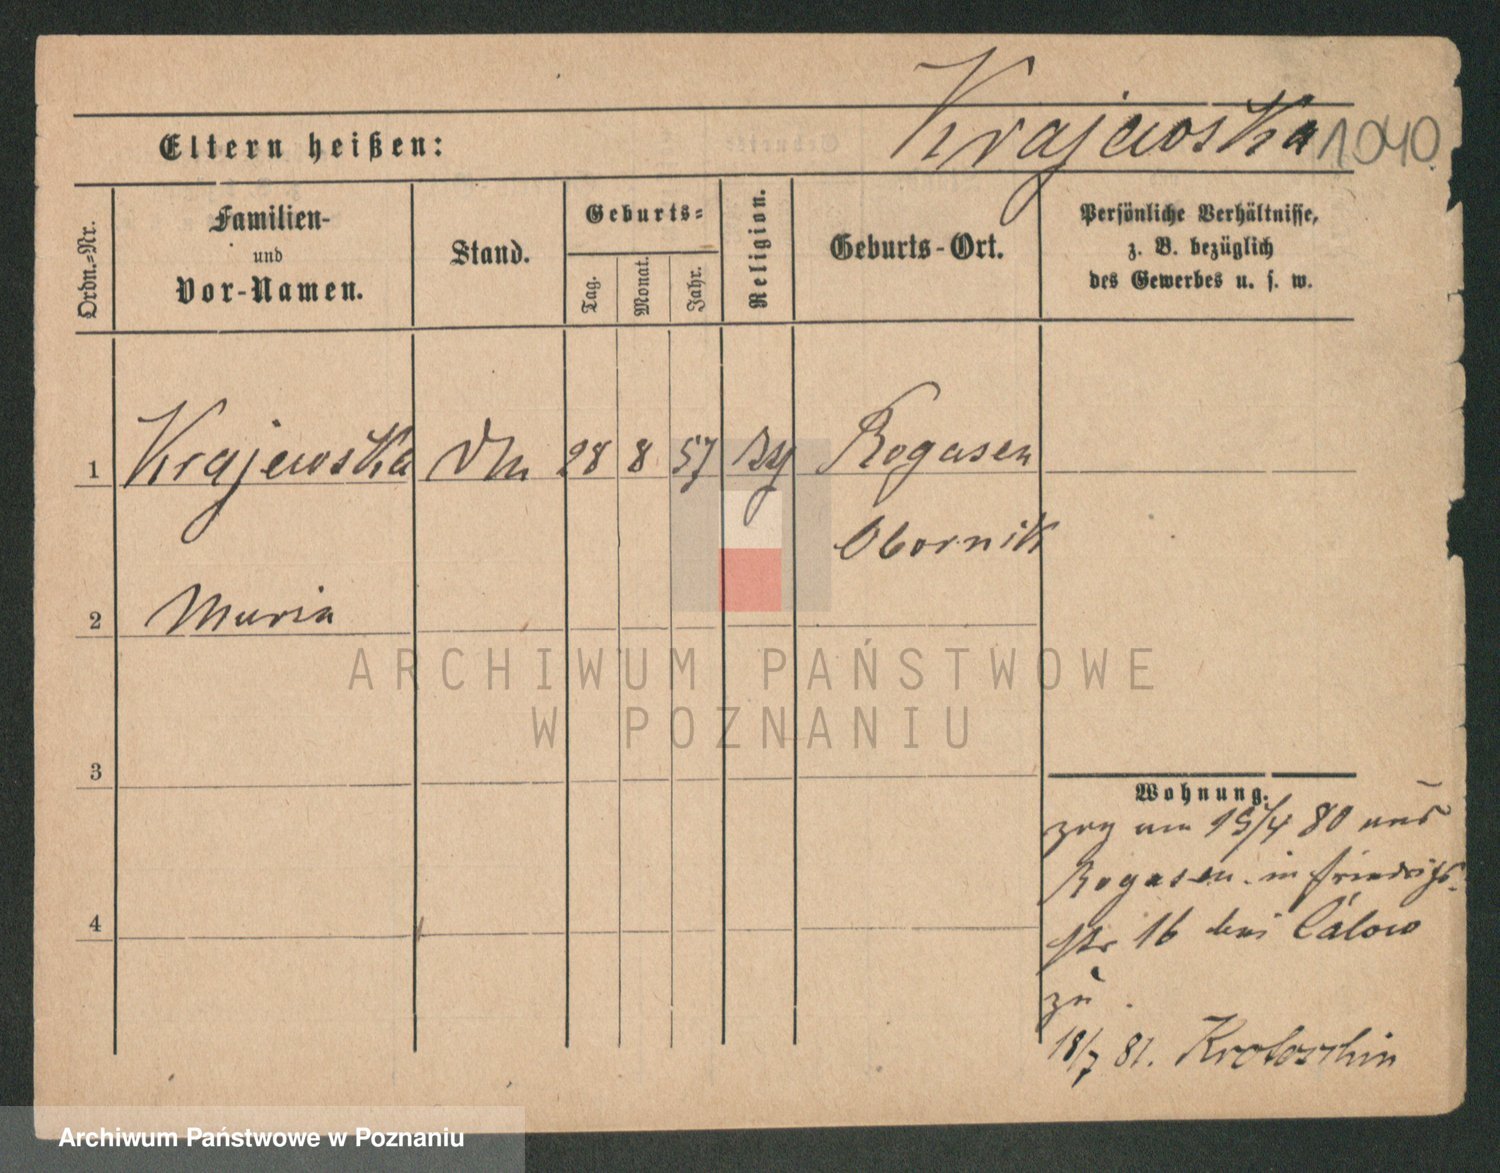 Krajewska 1040
Eltern heißen:
Ordn.-Nr.
Familien-
und
Vor-Namen.
Stand.
Geburts-
Tag.
Monat.
Jahr.
Religion.
Geburts-Ort.
Persönliche Verhältnisse,
z. B. bezüglich
des Gewerbes u. s. w.
1 Krajewska 28 8 57 Rogasen
Obornik
2 Maria
ARCHIWUM PAŃSTWOWE
W POZNANIU
3
Wohnung.
zog am 19/4 80 aus
Rogasen in Friedrichs-
4
str 16 bei Calow
zu
18/7 81. Krotoschin
Archiwum Państwowe w Poznaniu